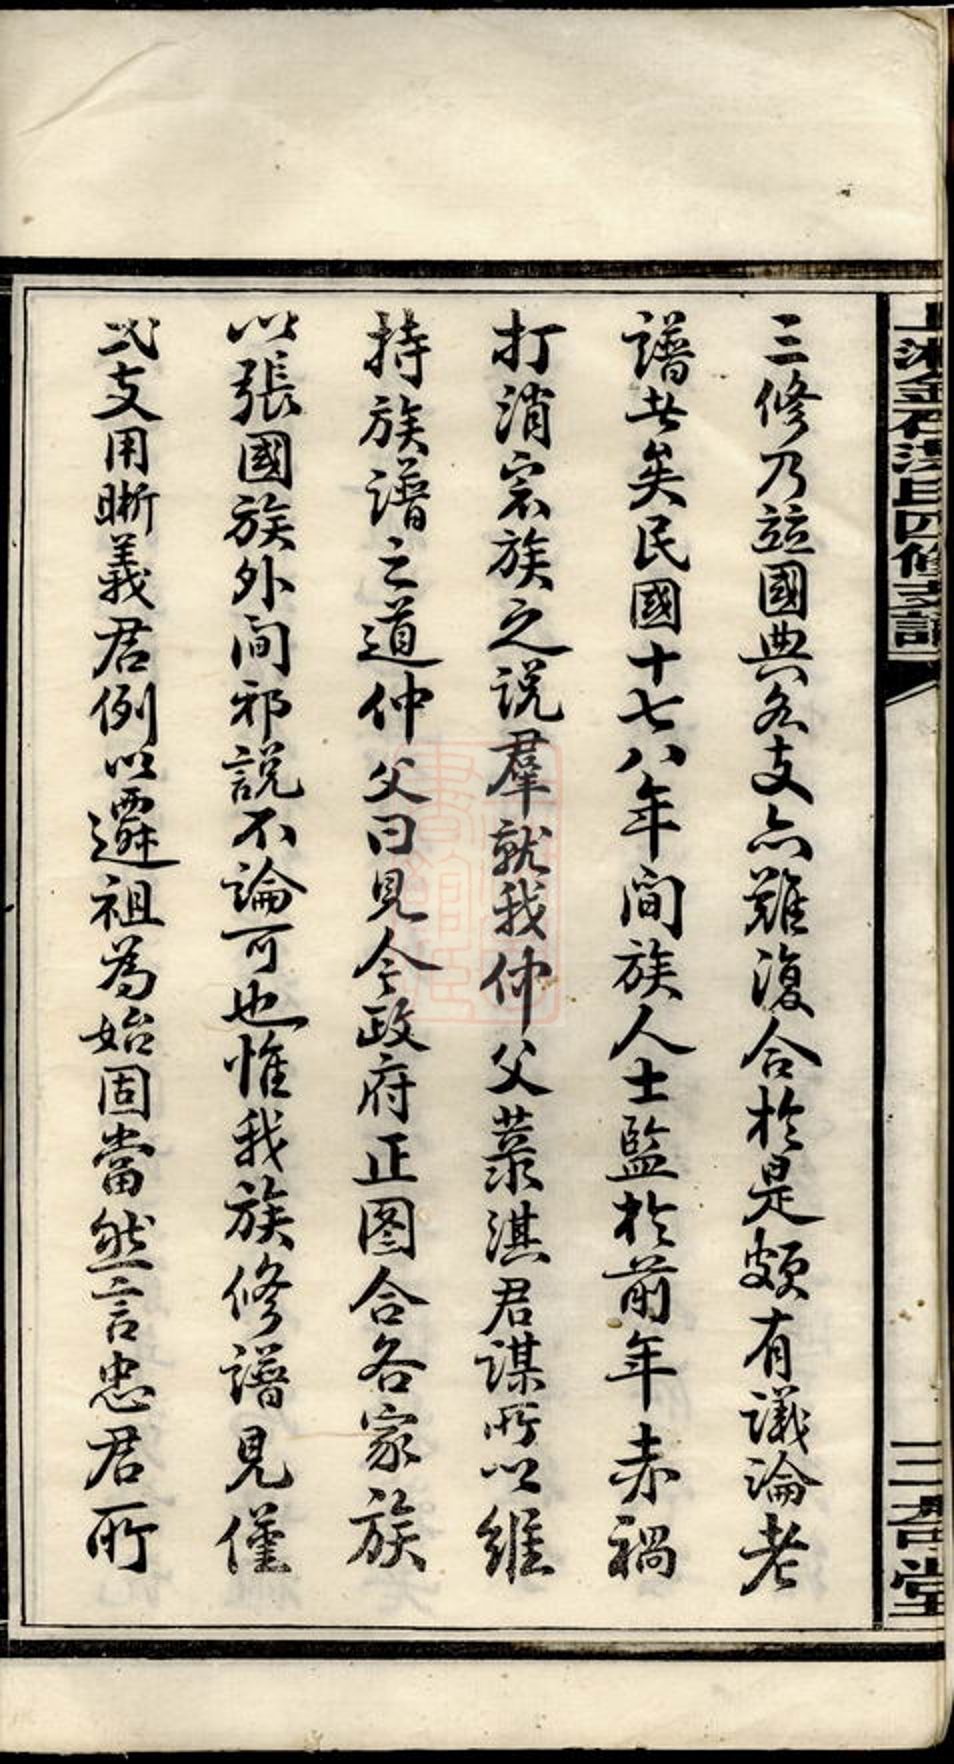 三修乃竝國典各支亦難復合於是頗有議論老
譜者矣民國十七八年間族人士監於前年赤禍
打消宗族之説羣就我仲父菉淇君謀所以維
持族譜之道仲父曰見今政府正图合各家族
以張國族外间邪說不論可也惟我族修譜見僅
弍支用晣義君例以遷祖為始固當然言忠君所
上湘金石洪氏四修支譜
三 堂